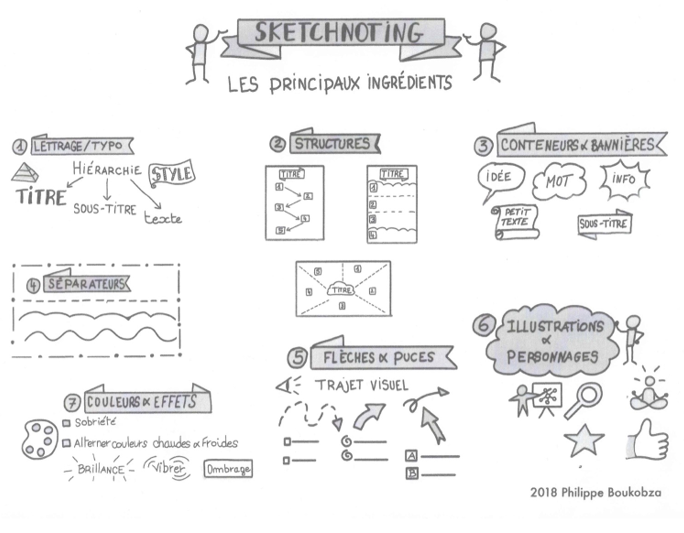 SKETCHNOTING
LES PRINCIPAUX INGRÉDIENTS
1 LETTRAGE/TYPO
HIÉRARCHIE
STYLE
TITRE
SOUS-TITRE
texte
2 STRUCTURES
TITRE
1
2
3
4
5
TITRE
1
2
3
4
TITRE
3 CONTENEURS & BANNIÈRES
IDÉE
MOT
INFO
PETIT
TEXTE
SOUS-TITRE
4 SÉPARATEURS
5 FLÈCHES & PUCES
TRAJET VISUEL
A
B
6 ILLUSTRATIONS
&
PERSONNAGES
7 COULEURS & EFFETS
Sobriété
Alterner couleurs chaudes & froides
BRILLANCE
Vibrer
Ombrage
2018 Philippe Boukobza